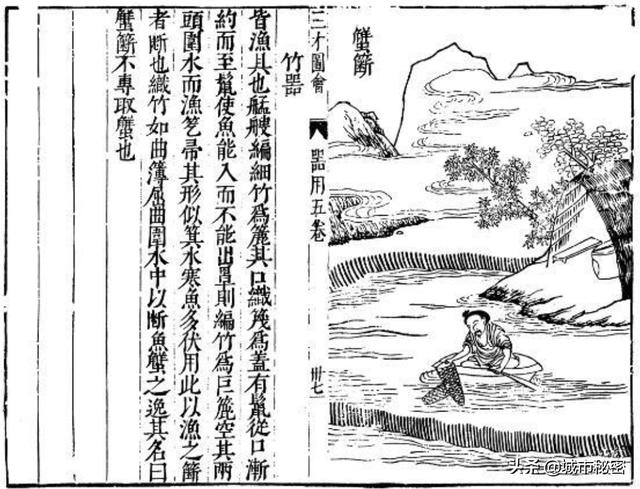 蟹簖
三才圖會
噐用五卷
卅七
竹噐
皆漁具也艋艘編細竹爲簏其口織篾爲蓋有鬣從口漸
約而至鬣使魚能入而不能出罩則編竹爲巨簏空其兩
頭圍水而漁笐帚其形似箕水寒魚多伏用此以漁之簖
者断也織竹如曲簿屈曲圍水中以断魚蟹之逸其名曰
蟹簖不專取蟹也
头条@城市秘密